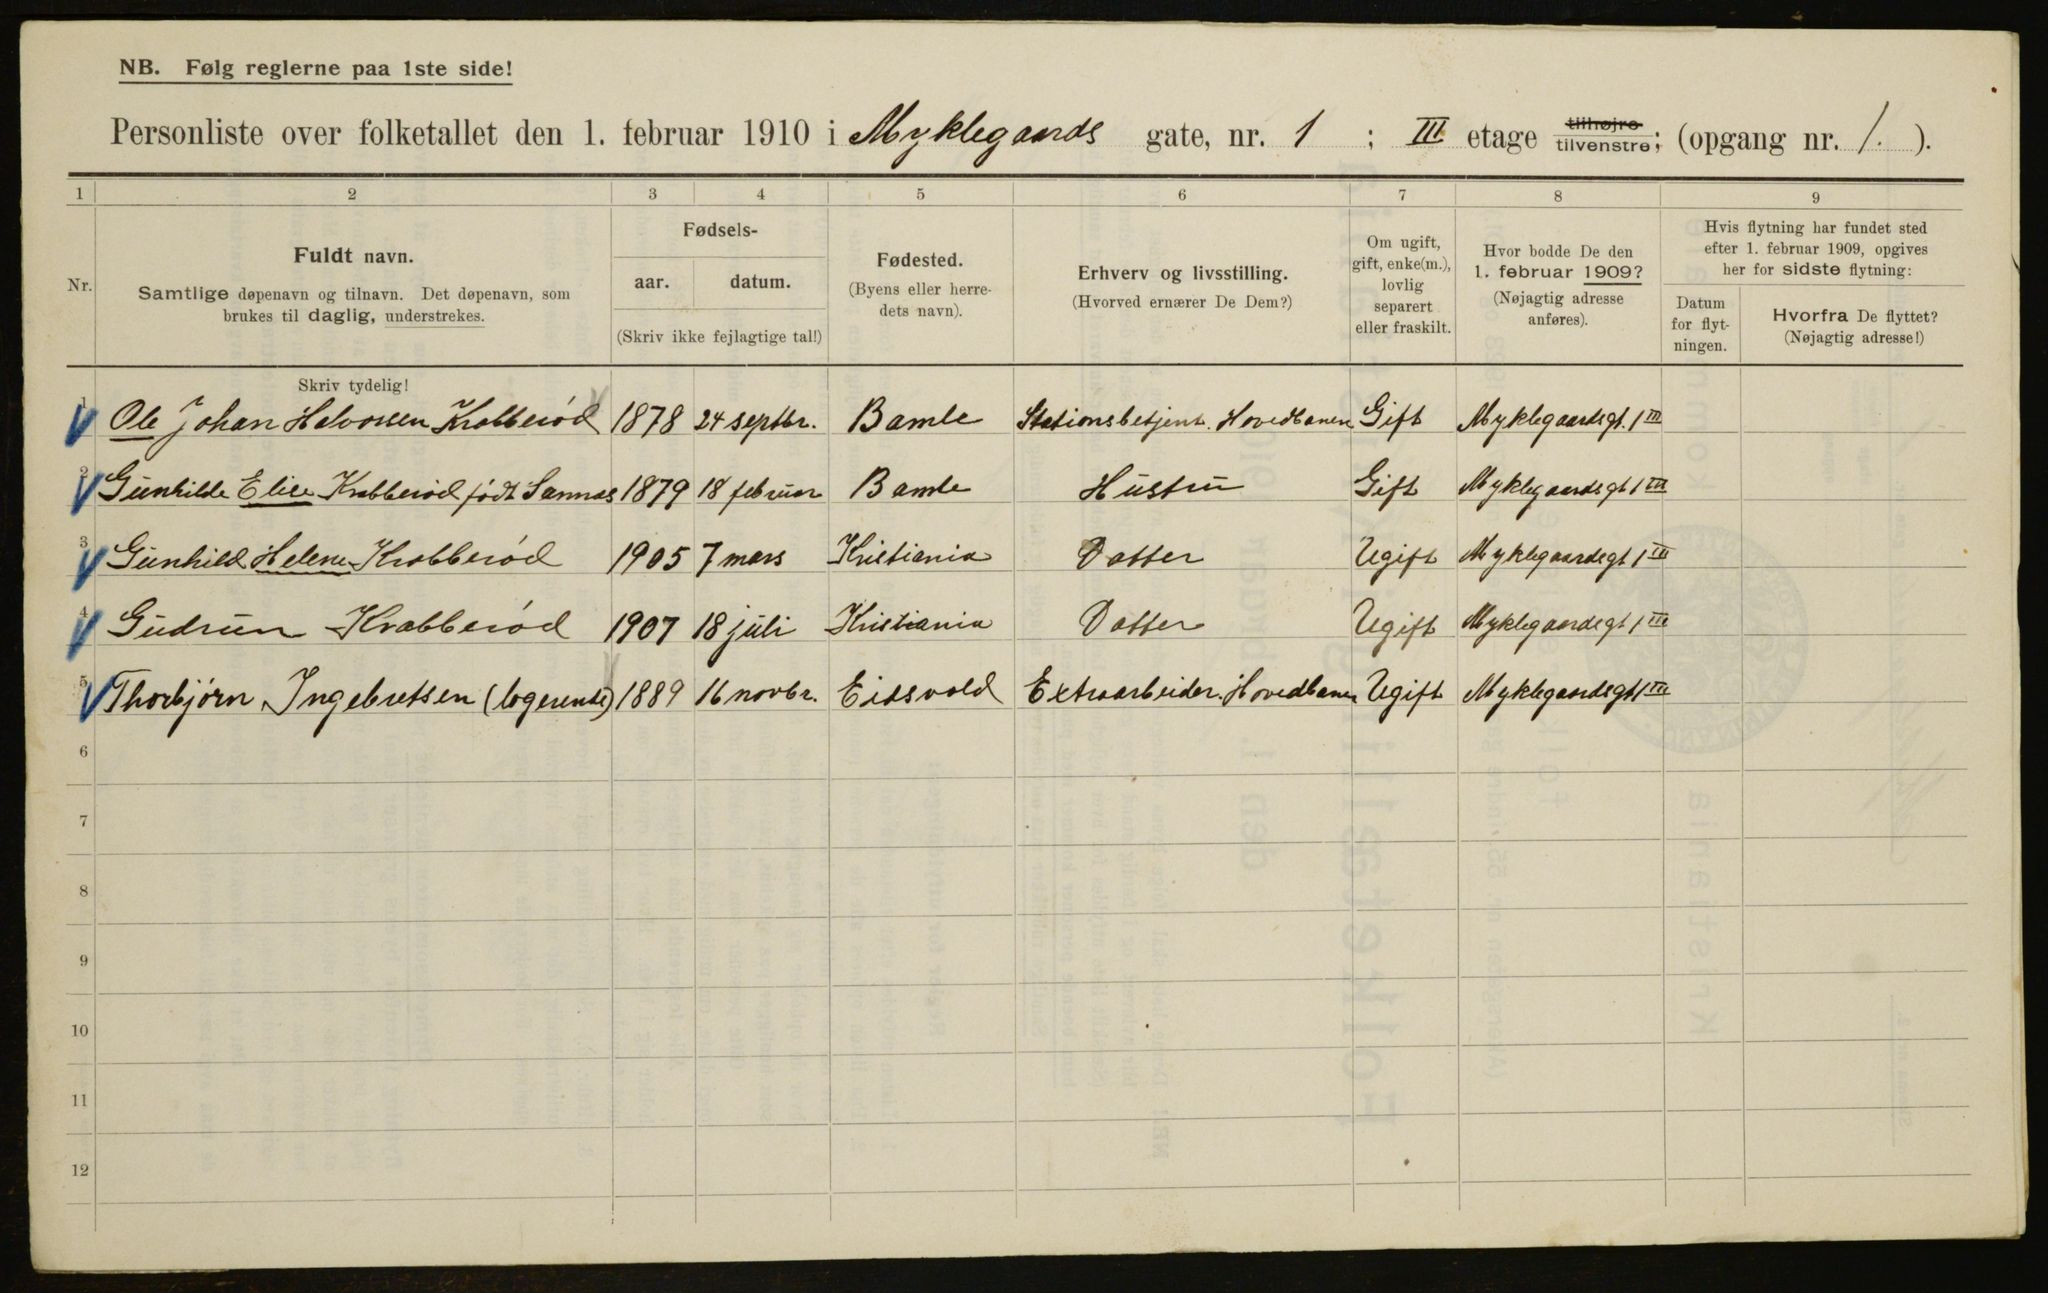 NB. Følg reglerne paa 1ste side!
Personliste over folketallet den 1. februar 1910 i Myklegaards gate, nr. 1 ; III etage tilhøjre tilvenstre; (opgang nr. 1. ).
1 2 3 4 5 6 7 8 9
Nr.
Fuldt navn.
Samtlige døpenavn og tilnavn. Det døpenavn, som
brukes til daglig, understrekes.
Fødsels-
aar. datum.
(Skriv ikke fejlagtige tal!)
Fødested.
(Byens eller herre-
dets navn).
Erhverv og livsstilling.
(Hvorved ernærer De Dem?)
Om ugift,
gift, enke(m.),
lovlig
separert
eller fraskilt.
Hvor bodde De den
1. februar 1909?
(Nøjagtig adresse
anføres).
Hvis flytning har fundet sted
efter 1. februar 1909, opgives
her for sidste flytning:
Datum
for flyt-
ningen.
Hvorfra De flyttet?
(Nøjagtig adresse!)
Skriv tydelig!
1 Ole Johan Halvorsen Krabberød 1878 24 septbr. Bamle Stationsbetjent. Hovedbanen Gift Myklegaardsgt. 1 III
2 Gunhilde Elise Krabberød født Sannas 1879 18 februar Bamle Hustru Gift Myklegaardsgt 1 III
3 Gunhild Helene Krabberød 1905 7 mars Kristiania Datter Ugift Myklegaardsgt 1 III
4 Gudrun Krabberød 1907 18 juli Kristiania Datter Ugift Myklegaardsgt 1 III
5 Thorbjørn Ingebretsen (logerende) 1889 16 novbr. Eidsvold Extraarbeider. Hovedbanen Ugift Myklegaardsgt 1 III
6
7
8
9
10
11
12